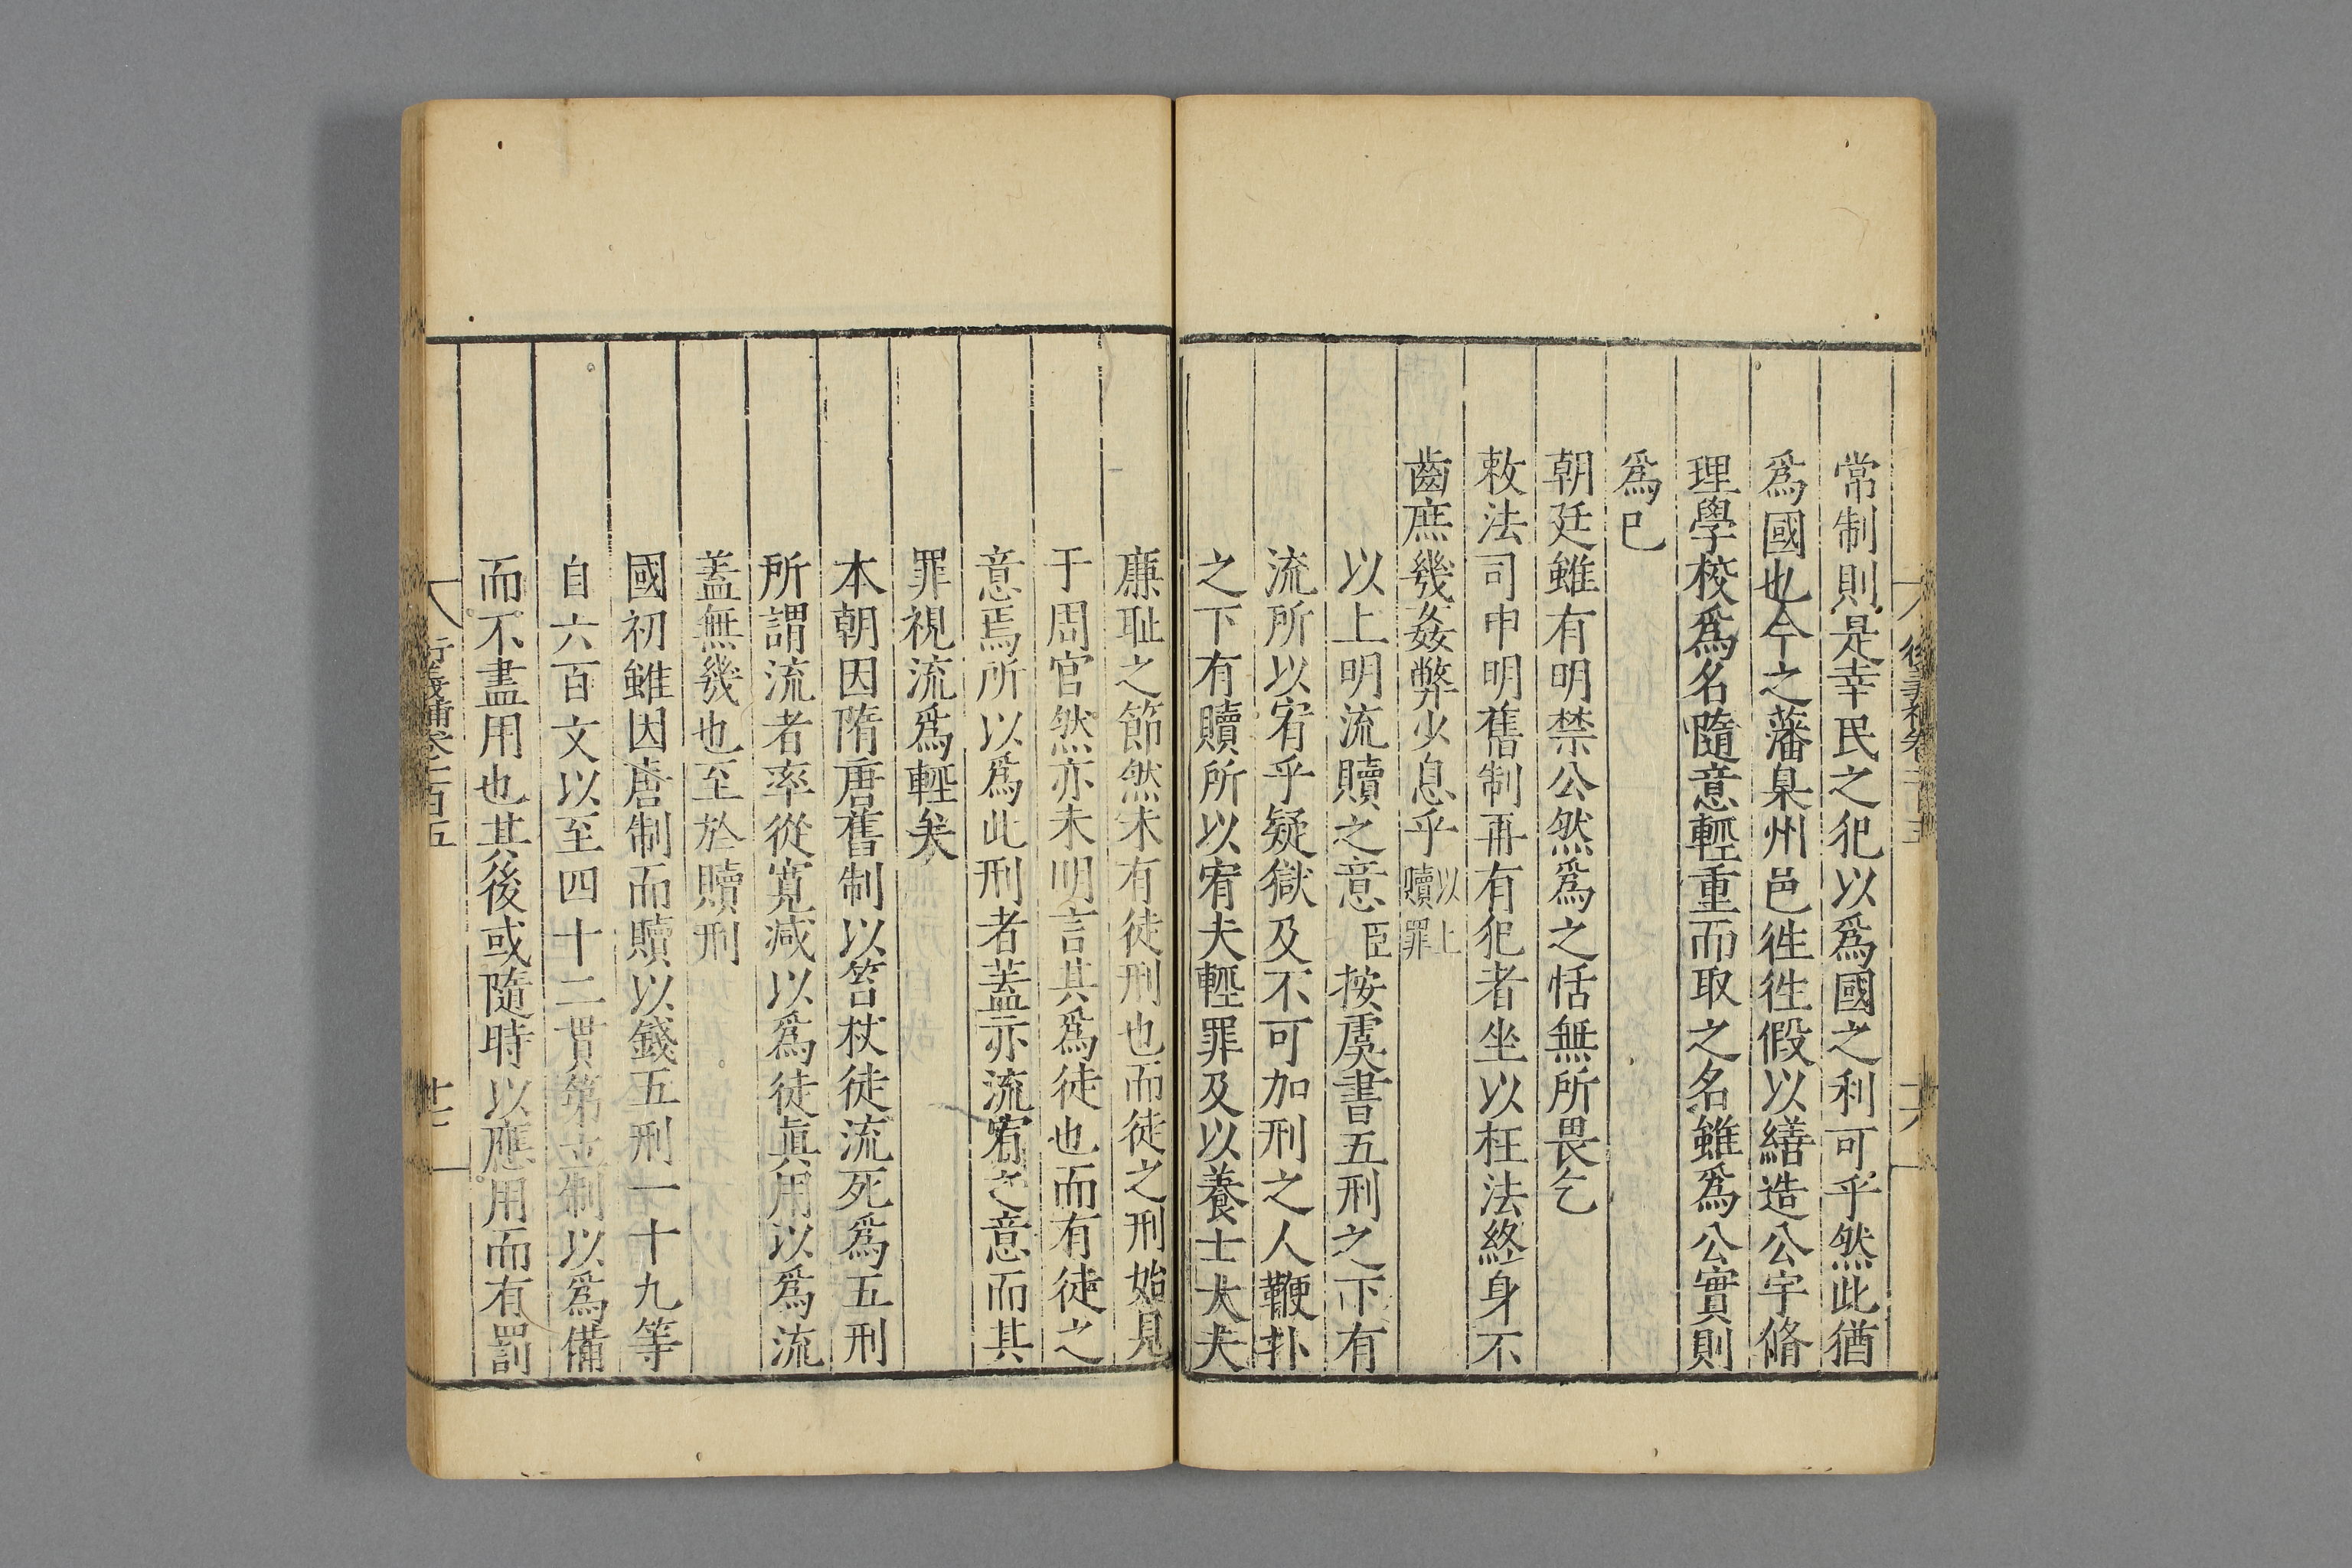 常制則是幸民之犯以爲國之利可乎然此猶
爲國也今之藩臬州邑徃徃假以繕造公宇脩
理學校爲名隨意輕重而取之名雖爲公實則
爲已
朝廷雖有明禁公然爲之恬無所畏乞
敕法司申明舊制再有犯者坐以枉法終身不
齒庶幾姦弊少息乎以上贖罪
以上明流贖之意臣按虞書五刑之下有
流所以宥乎疑獄及不可加刑之人鞭扑
之下有贖所以宥夫輕罪及以養士大夫
廉耻之節然未有徒刑也而徒之刑始見
于周官然亦未明言其爲徒也而有徒之
意焉所以爲此刑者蓋亦流宥之意而其
罪視流爲輕矣
本朝因隋唐舊制以笞杖徒流死爲五刑
所謂流者率從寛減以爲徒眞用以爲流
蓋無幾也至於贖刑
國初雖因唐制而贖以錢五刑一十九等
自六百文以至四十二貫第立制以爲備
而不盡用也其後或隨時以應用而有罰